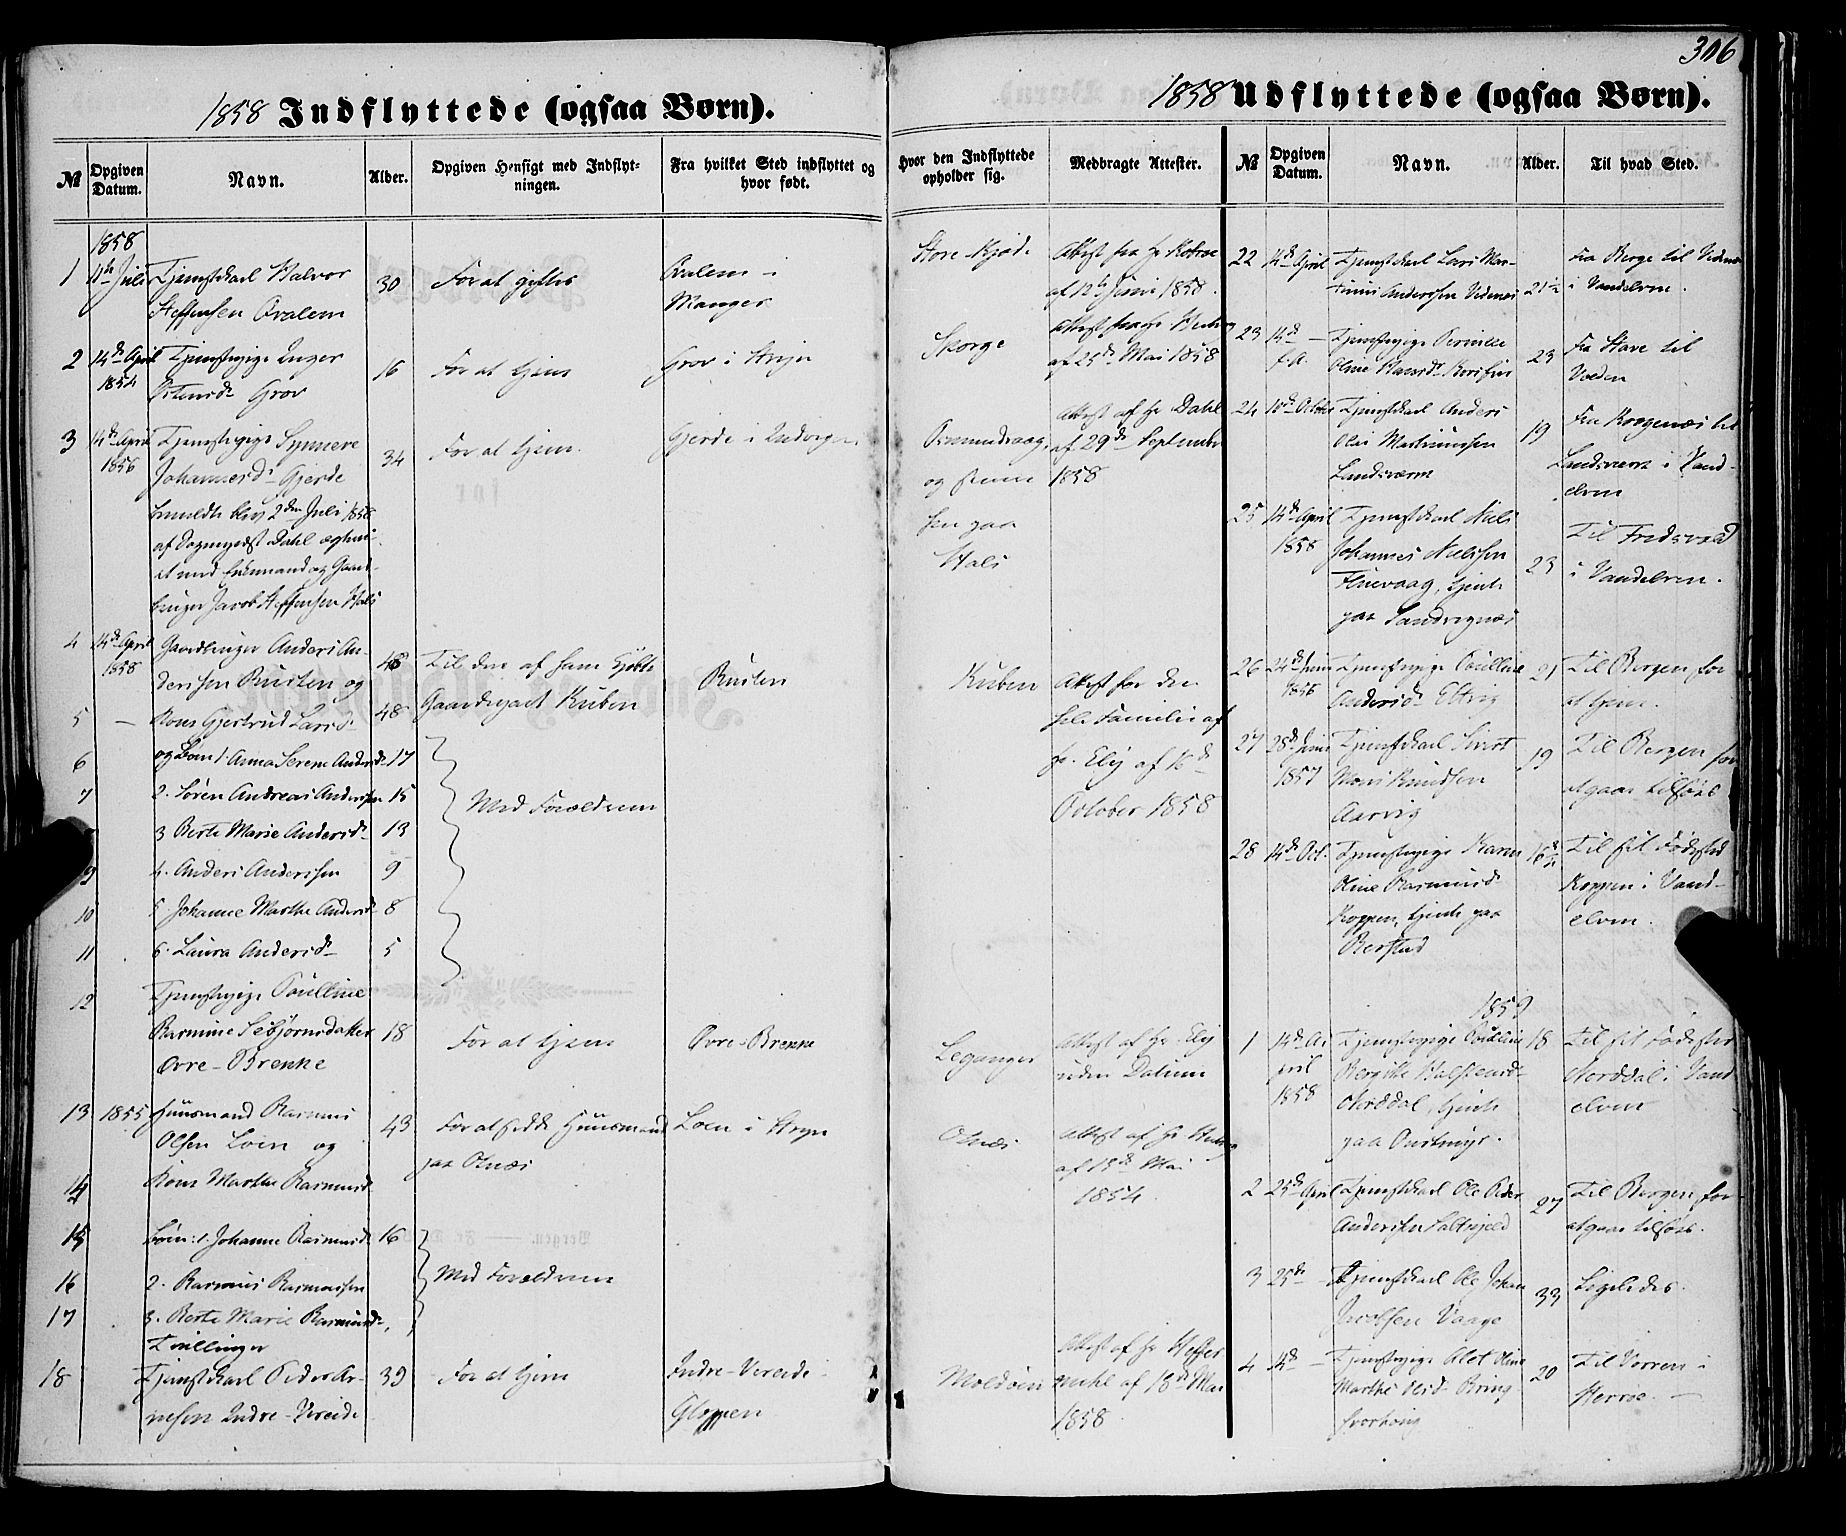 306
1858 Indflyttede (ogsaa Børn).
№
Opgiven Datum.
Navn.
Alder.
Opgiven Hensigt med Indflyt-
ningen.
Fra hvilket Sted indflyttet og
hvor født.
Hvor den Indflyttede
opholder sig.
Medbragte Attester.
1858
1 11te Juli Tjenestkarl Halvor
Steffensen Qvalem
30 For at giftes
Qvalem i
Manger
Attest fra Hr
af 12te Juni 1858.
2 14de April
1854
Tjenestepige Inger
Grov
16 For at tjene
Grov i Stryn
Skorge
Attest fra Hr
af 25de Mai 1858
3 14de April
1856
Tjenestepige Synneve
Johannesd. Gjerde
34 For at tjene.
Gjerde i Indvigen
blev 2den Juli 1858
af Sognepræst Dahl
et med Enkemand og Gaard-
bruger Jacob Steffensen Hals
og
paa
Hals
Attest af Hr Dahl
af 29de September
1858
4 14de April
1858
Gaardbruger Anders An-
dersen Rusten og
48 Til den af ham kjøbte
Gaardepart Kuben
Rusten
Kuben
Attest for den
hele Familie af
Hr. Elig af 16de
October 1858
5 — Kone Gjertrud Larsd.
48
6 og Børn 1. Anna Serene Andersd. 17
7 2. Søren Andreas Andersen 15
Med Forældrene
3 Berte Marie Andersd. 13
9 4. Anders Andersen 9
10 5 Johanne Marthe Andersd. 8
11 6. Laura Andersd. 5
12 Tjenestepige Poulline
Rasmine Sebjørnsdatter
Øvre-Brenne
18 For at tjene
Øvre-Brenne
Leganger
Attest af Hr Elig
uden Datum
13 1855 Huusmand Rasmus
Olsen Loen og
43 For at sidde Huusmand
paa Osnæs
Loen i Stryn
Osnæs
Attest af Hr
af 13de Mai
1854.
14 Kone Marthe Rasmusd.
15 Børn: 1. Johanne Rasmusd. 16
16 2. Rasmus Rasmussen
Med Forældrene
17 3. Berte Marie Rasmusd.,
Tvillinger
18 Tjenestkarl Peder Ar-
nesen Indre-Vereide
39 For at tjene
Indre-Vereide i
Gloppen
Moldøen
Attest af Hr Heffer-
mehl af 18de Mai
1858.
1858 Udflyttede (ogsaa Børn).
№
Opgiven Datum.
Navn.
Alder.
Til hvad Sted.
22 14de April Tjenestkarl Lars Mar-
tinus Andersen Vednæs
21½ Fra Berge til Vednæs
i Vandelven.
23 14de —
Tjenestepige Pernille
Oline Hansd.
23 Fra Stave til
Volden
24 10de Octbr Tjenestkarl Anders
Olai Martinussen
Landsværn
19 Fra Koppenæs til
Landsværn i Vand-
elven
25 14de April
1858
Tjenestkarl Niels
Johannes Nielsen
Fluevaag, tjente
paa Sandvignæs
23 Til Fredsvold
i Vandelven.
26 24de Juni
1856
Tjenestepige Poulline
Andersd. Eltvig
21 Til Bergen for
at tjene.
27 28de Juni
1857
Tjenestkarl Sivert
Mons Knudsen
Aarvig
19 Til Bergen for
at gaae tilsøes
28 14de Oct. Tjenestepige Karen
Oline Rasmusd.
Koppen, tjente paa
Berstad
Til sit Fødested
Koppen i Vand-
elven.
1859
1 14de A-
pril
1858
Tjenestepige Poulline
Bergitte Halsteensd.
Norddal, tjente
paa
18 Til sit Fødested
Norddal i Vand
elven
2 25de April Tjenestkarl Ole Peder
Andersen Saltskjeld
27 Til Bergen for
at gaae tilsøes.
3 25de — Tjenestkarl Ole Johan
Jacobsen Vaage
33 Ligeledes.
4 14de — Tjenestepige Alet Oline
Marthe Olsd. Bring-
svorhoug
20 Til Vorren i
Herrøe. —